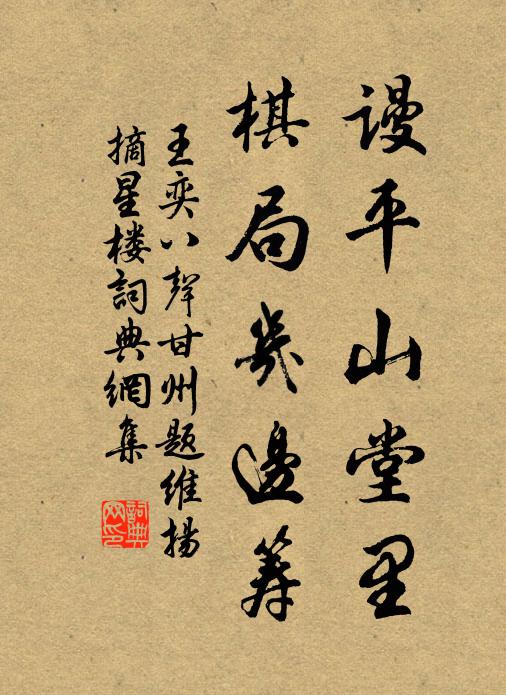 謾平山堂里
棋局几邊筹
王奕八聲甘州题維揚
摘星楼詞典網集
詞典
网印